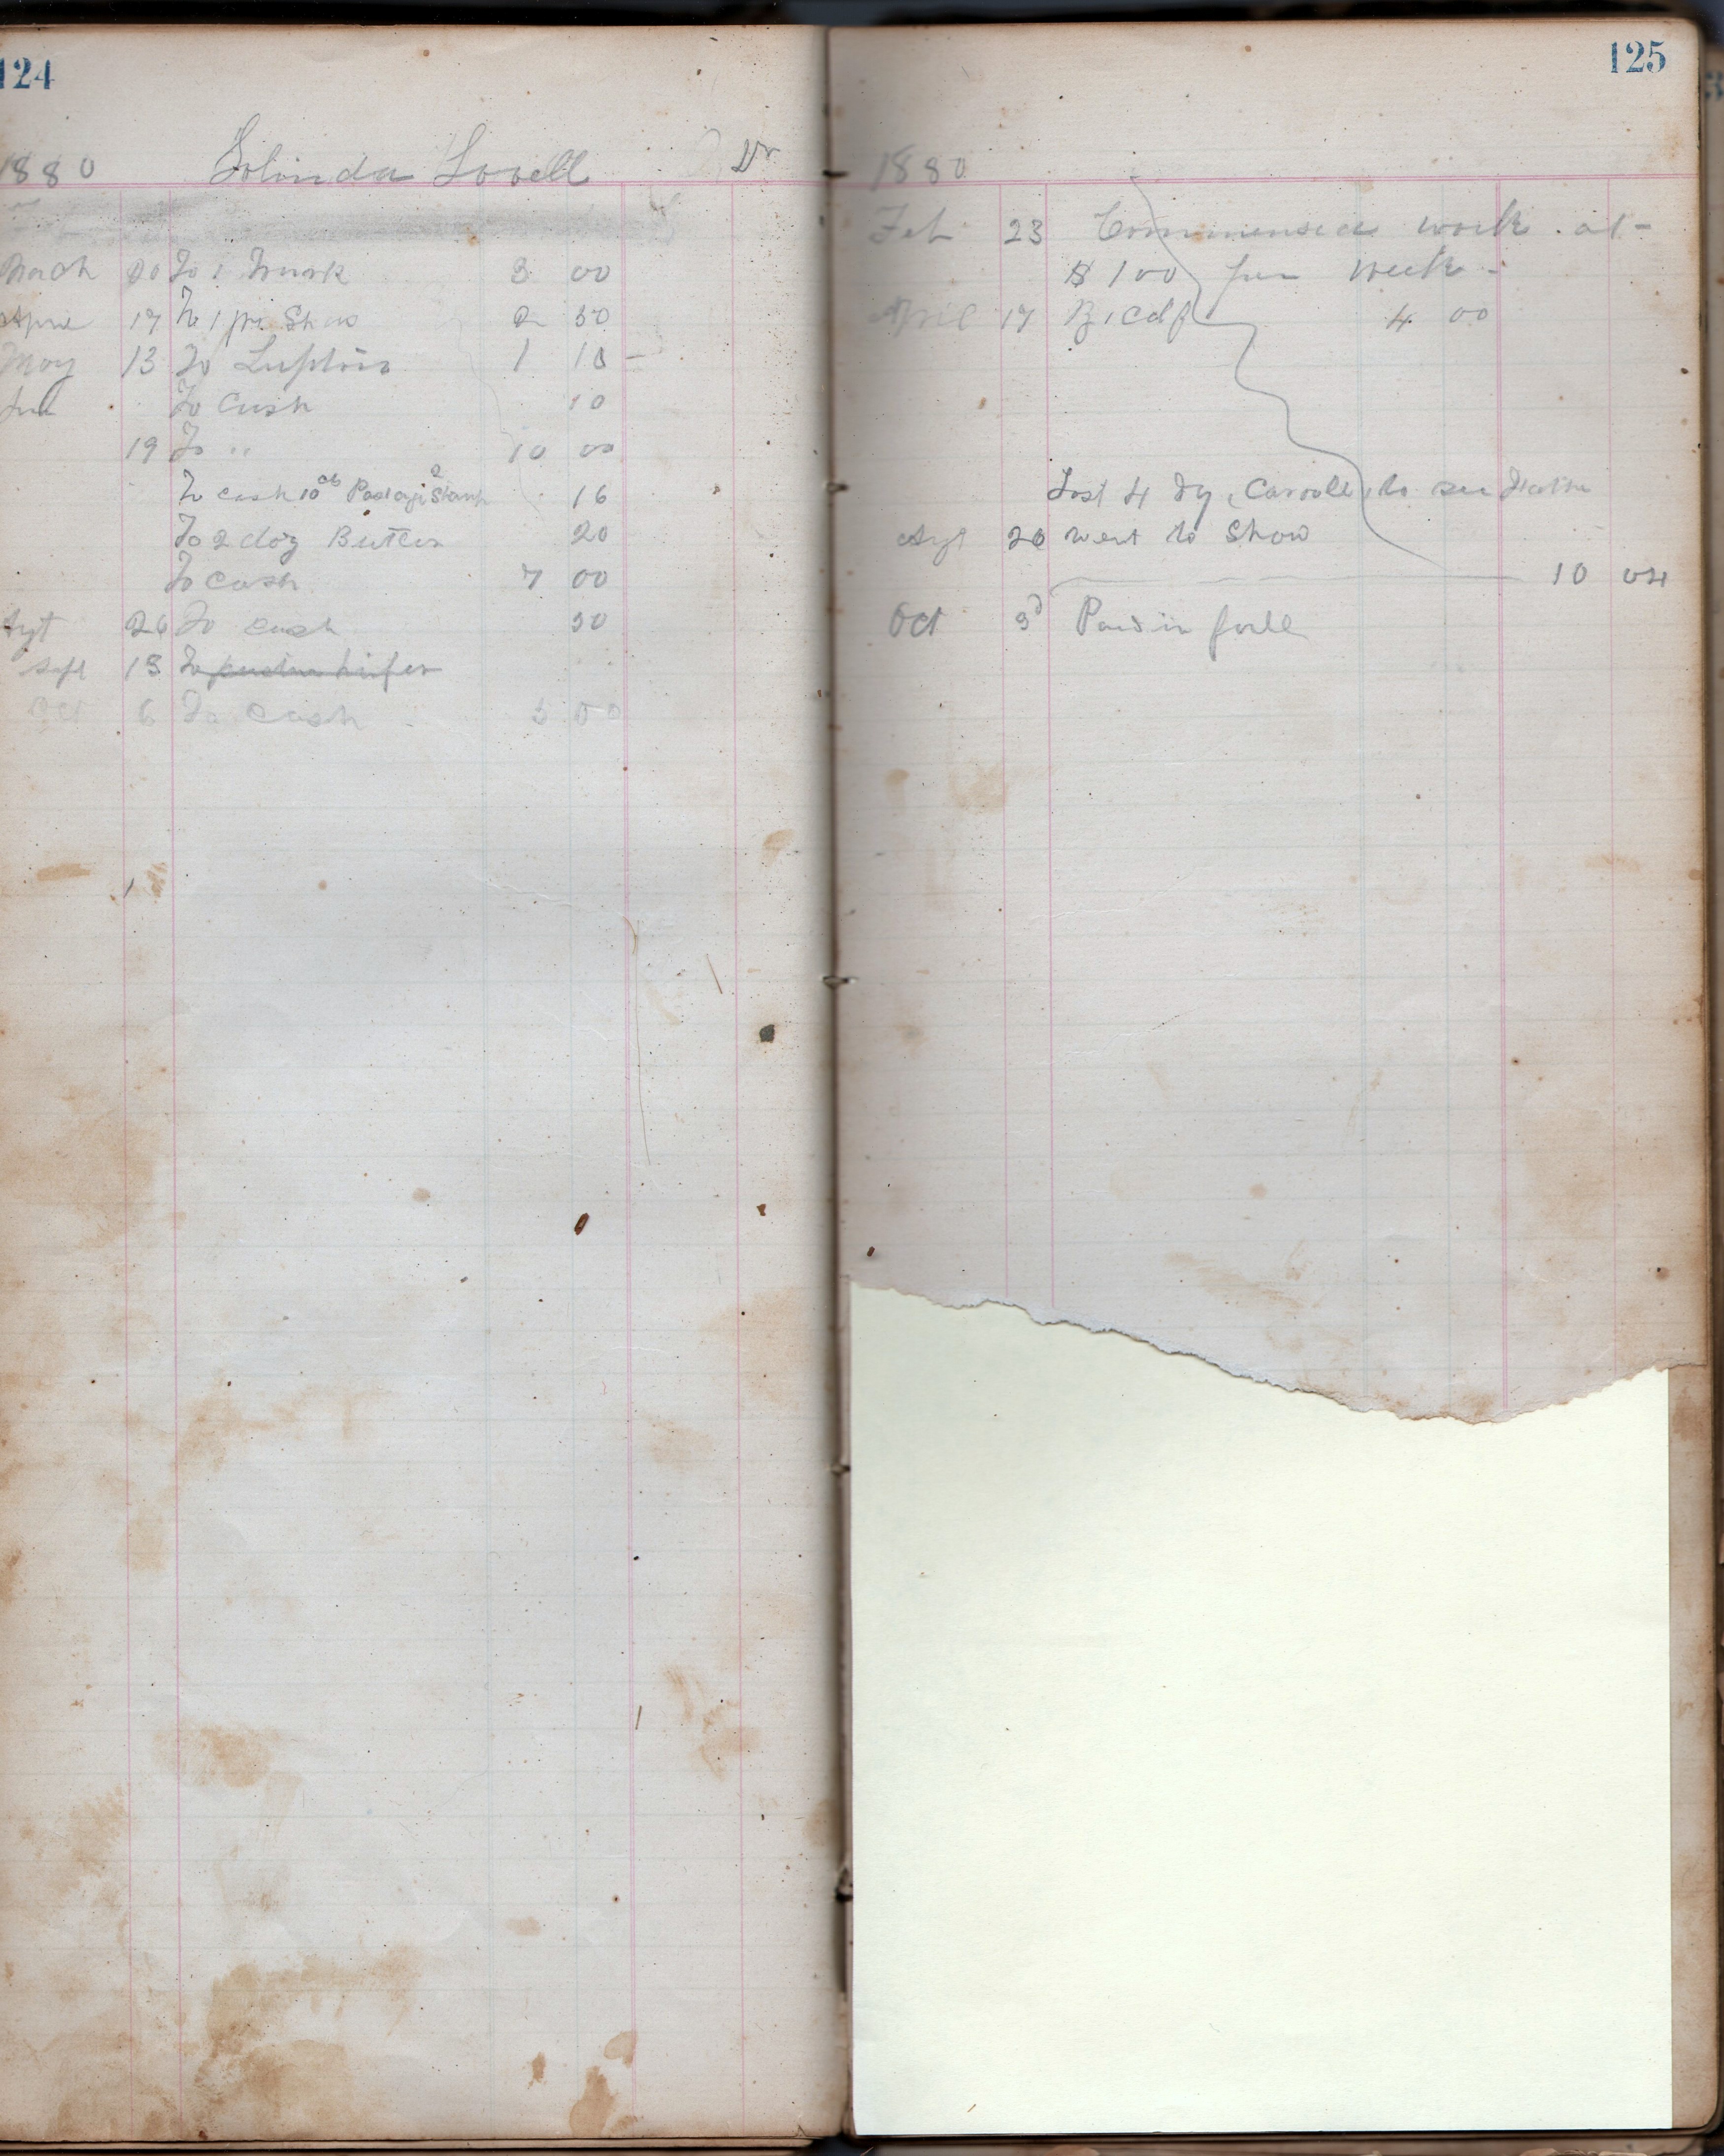 124
1880 Lovell Dr
March 20 To 1 Trunk 3 00
17 To 1 pr. Shoes 2 50
May 13 To 1 18
To Cush 10
19 To " 10 00
To cash 10 cts Postage 2 Stamp 16
To 2 doz Butter 20
To Cash 7 00
26 To cash 50
Sept 13 To
Oct 6 To Cash 00
125
1880
Feb 23 Commensed work at
$1 00 per week
April 17 By 1 Calf 4 00
Lost 4 dy, to see
26 went to Show
10 04
Oct 3d Paid in full